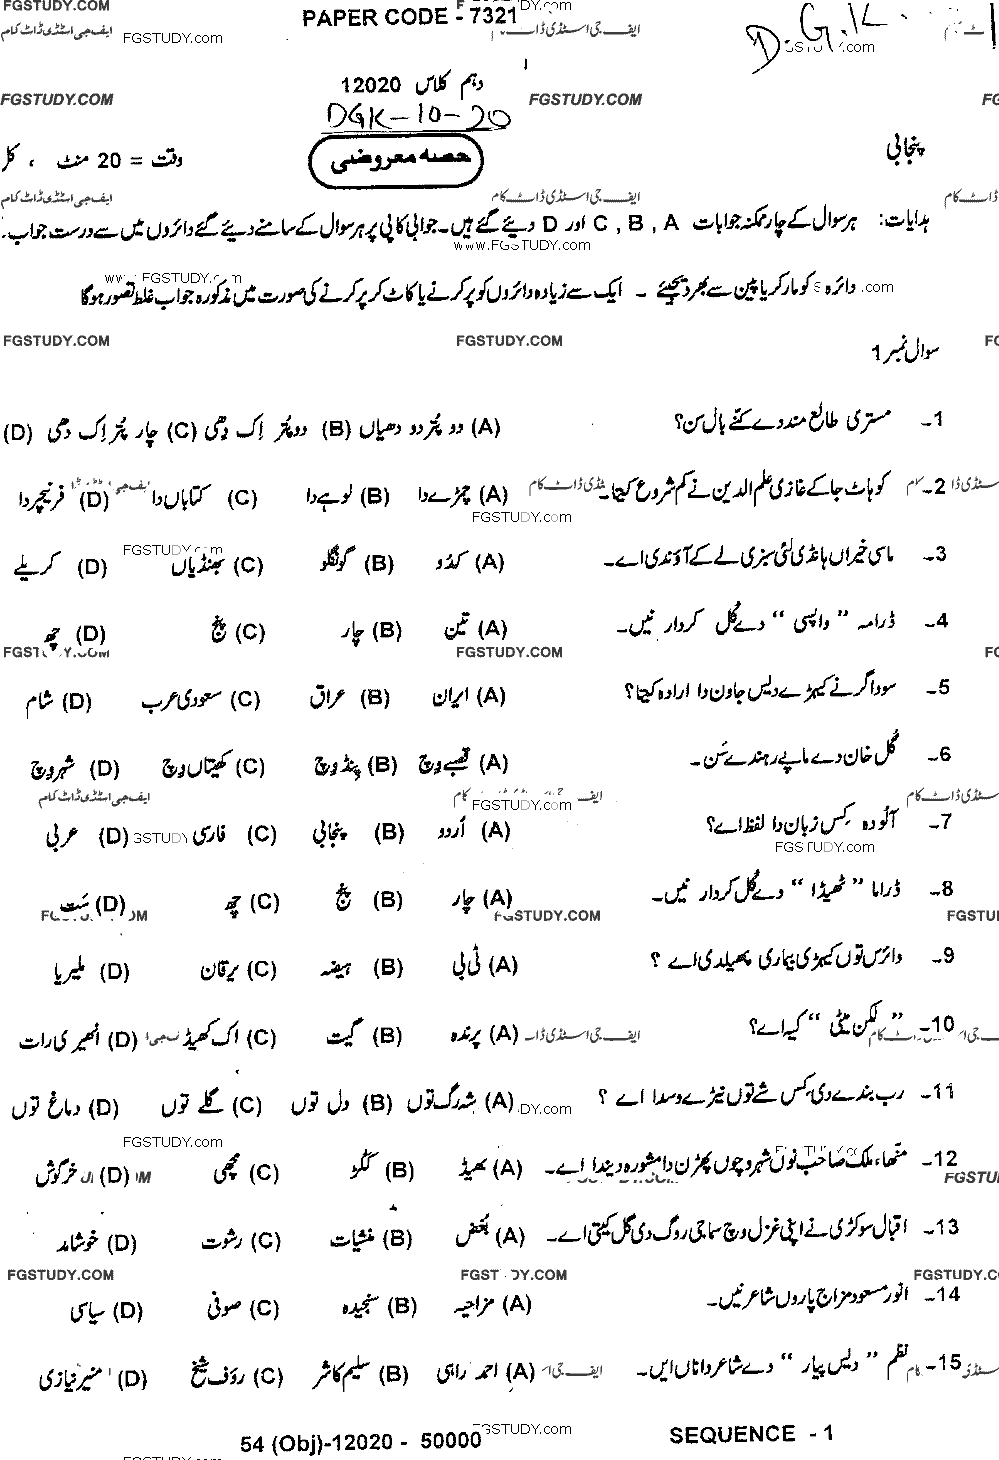 PAPER CODE - 7321
D.G.K.
دہم کلاس 12020
DGK-10-20
پنجابی
حصہ معروضی
وقت = 20 منٹ ، کل
ہدایات: ہر سوال کے چار ممکنہ جوابات A , B , C اور D دیئے گئے ہیں۔ جوابی کاپی پر ہر سوال کے سامنے دیئے گئے دائروں میں سے درست جواب
دائرہ کو مارکر یا پین سے بھر دیجئے ۔ ایک سے زیادہ دائروں کو پر کرنے یا کاٹ کر پر کرنے کی صورت میں مذکورہ جواب غلط تصور ہوگا
سوال نمبر 1
1۔ مستری طالع مند دے کنے بال سن؟ (A) دو پتر دو دھیاں (B) دو پتر اک دھی (C) چار پتر اک دھی (D)
2۔ کوہاٹ جا کے غازی علم الدین نے کم شروع کیتا۔ (A) چمڑے دا (B) لوہے دا (C) کتاباں دا (D) فرنیچر دا
3۔ ماسی خیراں ہانڈی لئی سبزی لے کے آؤندی اے۔ (A) کدو (B) گونگلو (C) بھنڈیاں (D) کریلے
4۔ ڈرامہ " واپسی " دے کل کردار نیں۔ (A) تین (B) چار (C) پنج (D) چھ
5۔ سوداگر نے کیہڑے دیس جاون دا ارادہ کیتا؟ (A) ایران (B) عراق (C) سعودی عرب (D) شام
6۔ گل خان دے ماپے رہندے سن۔ (A) قصبے وچ (B) پنڈ وچ (C) کھیتاں وچ (D) شہر وچ
7۔ آلودہ کس زبان دا لفظ اے؟ (A) اردو (B) پنجابی (C) فارسی (D) عربی
8۔ ڈراما " ٹھیڈا " دے کل کردار نیں۔ (A) چار (B) پنج (C) چھ (D) ست
9۔ وائرس توں کیہڑی بیماری پھیلدی اے ؟ (A) ٹی بی (B) ہیضہ (C) یرقان (D) ملیریا
10۔ " لکن میٹی " کیہ اے؟ (A) پرندہ (B) گیت (C) اک کھیڈ (D) انھیری رات
11۔ رب بندے دی کس شے توں نیڑے وسدا اے ؟ (A) شہ رگ توں (B) دل توں (C) گلے توں (D) دماغ توں
12۔ متھا، ملک صاحب نوں شہروچوں پھڑن دا مشورہ دیندا اے۔ (A) بھیڈ (B) ککڑ (C) مچھی (D) خرگوش
13۔ اقبال سوکڑی نے اپنی غزل وچ سماجی روگ دی گل کیتی اے۔ (A) بغض (B) منشیات (C) رشوت (D) خوشامد
14۔ انور مسعود مزاج پاروں شاعر نیں۔ (A) مزاحیہ (B) سنجیدہ (C) صوفی (D) سیاسی
15۔ نظم " دیس پیار " دے شاعر دا ناں ایں۔ (A) احمد راہی (B) سلیم کاشر (C) رؤف شیخ (D) منیر نیازی
54 (Obj)-12020 - 50000 SEQUENCE - 1